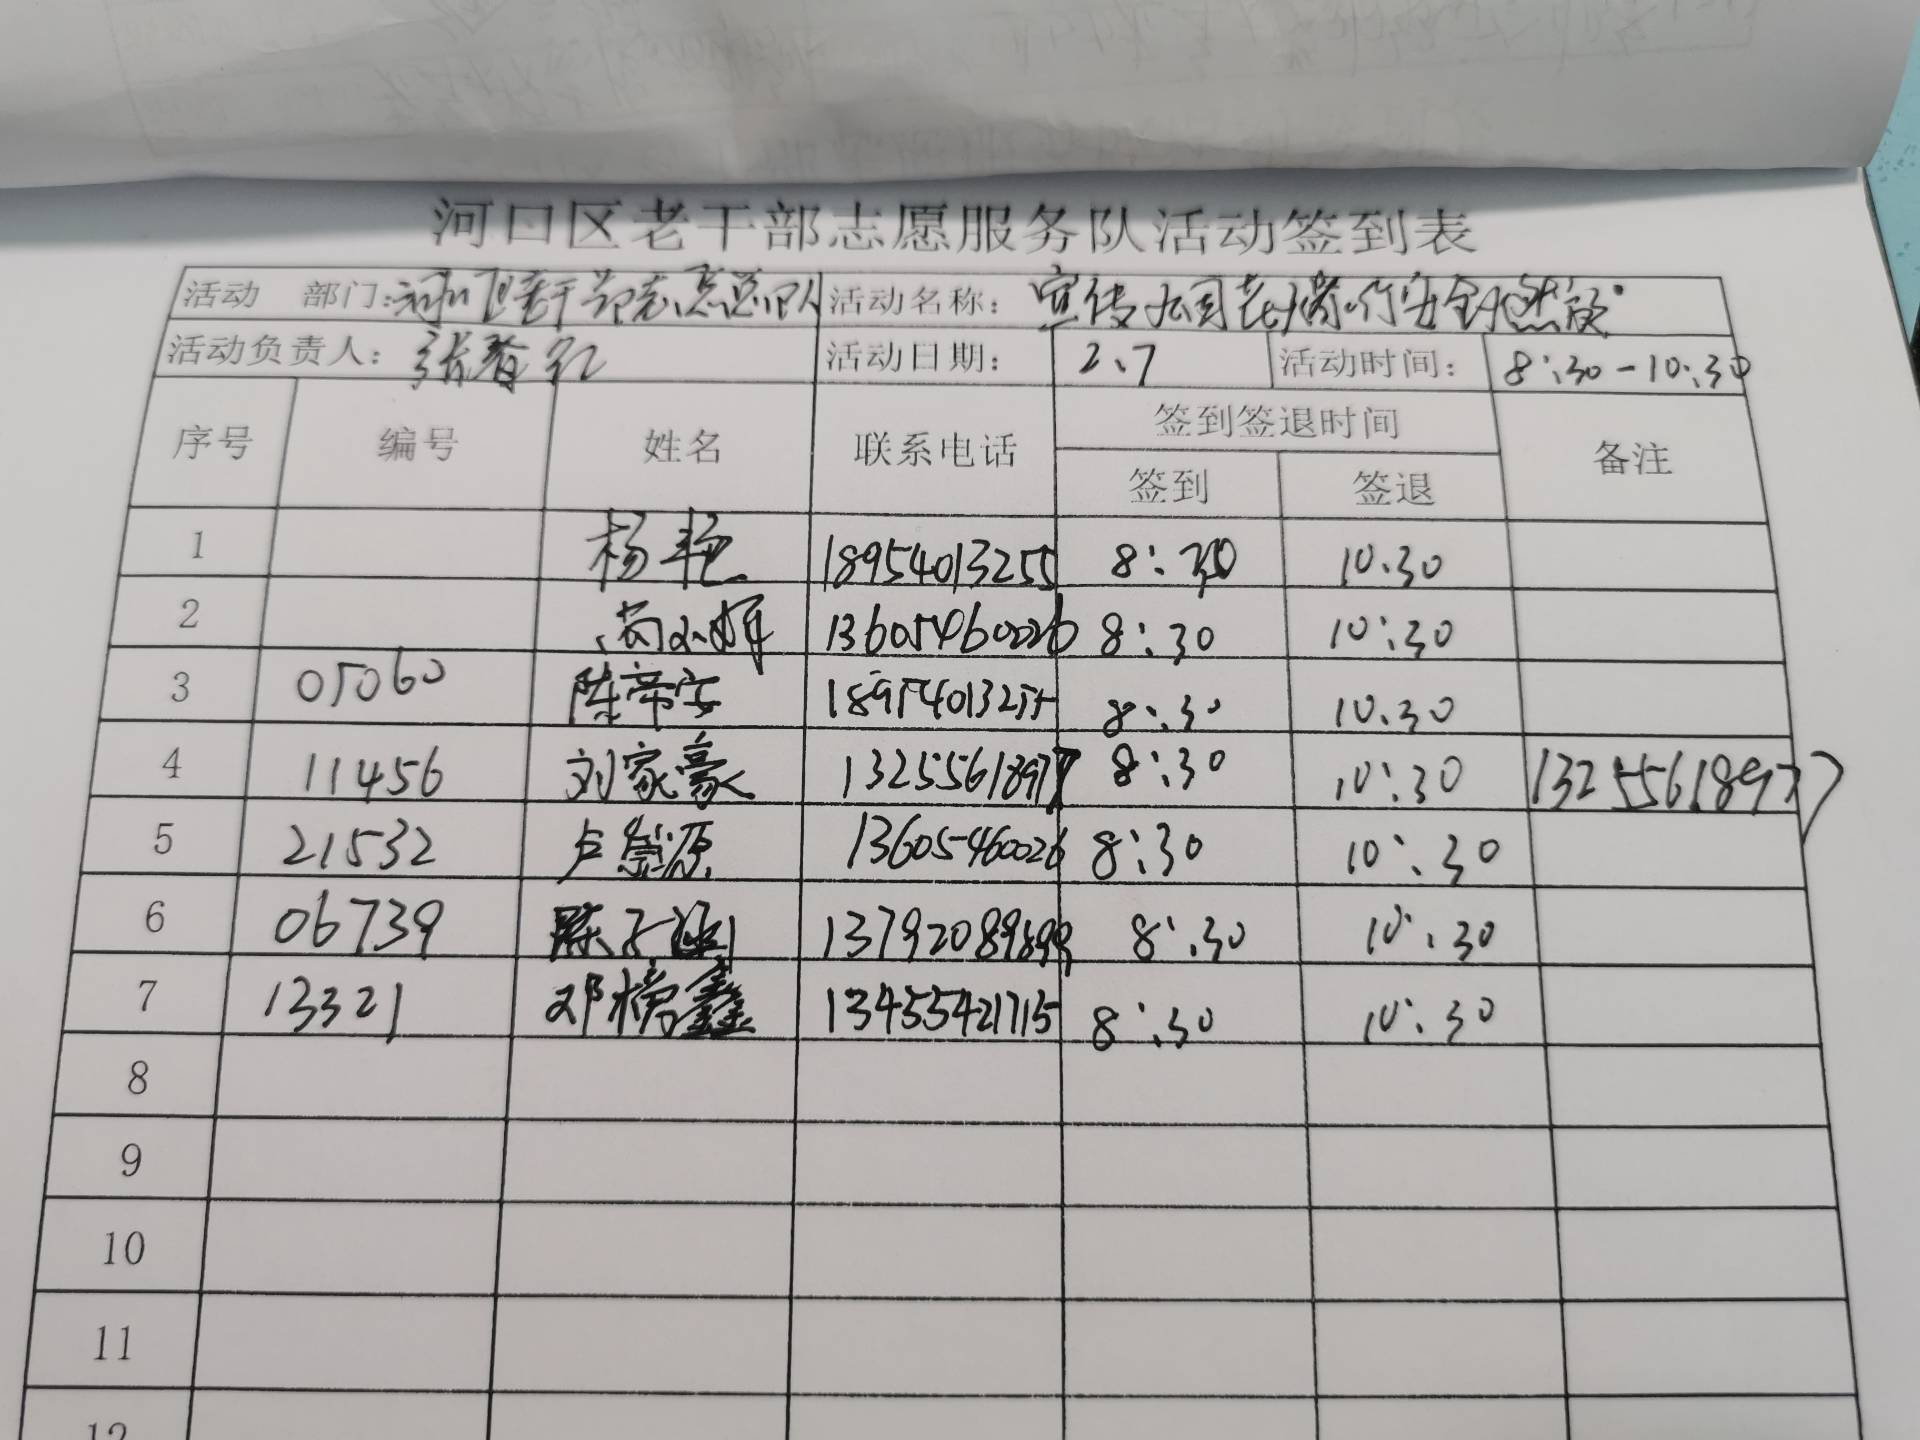 河口区老干部志愿服务队活动签到表
活动 部门: 河口区老干部志愿总队 活动名称: 宣传
活动负责人: 张春 活动日期: 2.7 活动时间: 8:30-10:30
序号 编号 姓名 联系电话 签到签退时间 备注
签到 签退
1 杨艳 18954013255 8:30 10.30
2 13605460026 8:30 10:30
3 05060 陈帝安 18954013255 8:30 10.30
4 11456 刘家豪 13255618977 8:30 10:30 13255618977
5 21532 卢崇源 13605460026 8:30 10:30
6 06739 陈子涵 13792089899 8:30 10:30
7 13321 邓榜鑫 13455421715 8:30 10:30
8
9
10
11
12